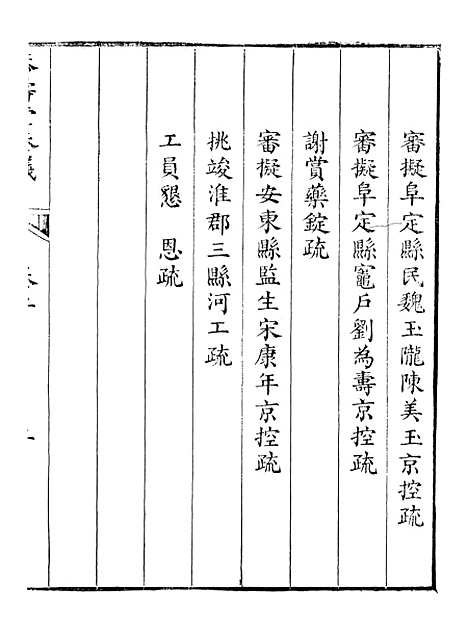 審擬阜定縣民魏玉隴陳美玉京控疏
審擬阜定縣竈戶劉為壽京控疏
謝賞藥錠疏
審擬安東縣監生宋康年京控疏
挑竣淮郡三縣河工疏
工員懇　恩疏